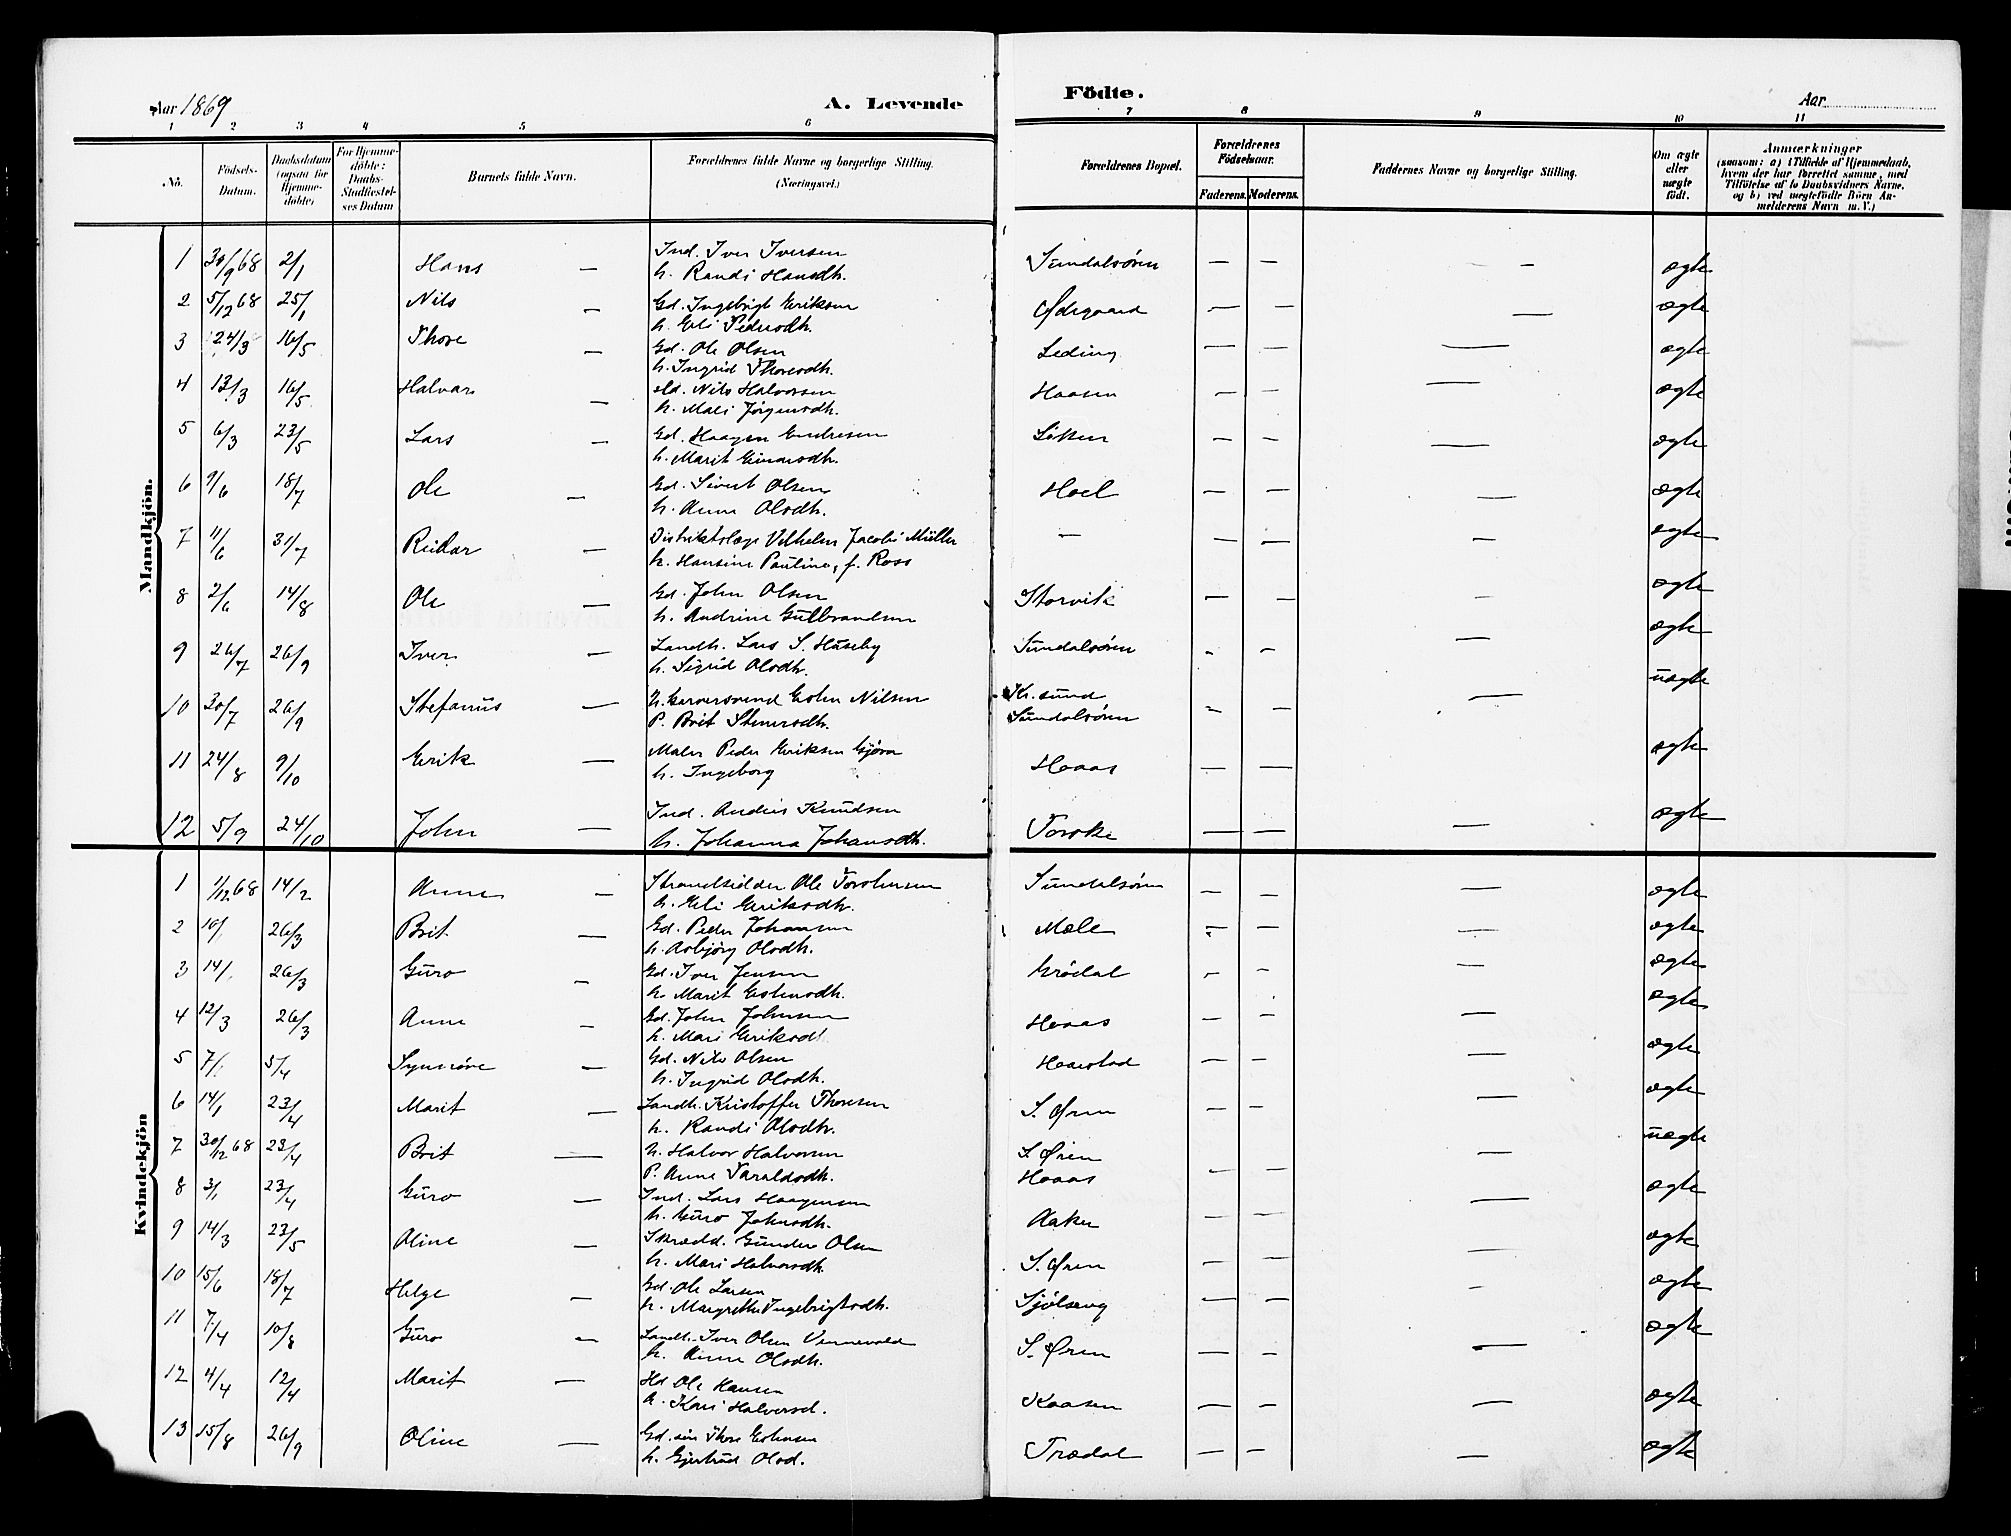 Aar 1869
A. Levende
Födte.
Aar
1 2 3 4 5 6 7 8 9 10 11
No. Födsels-Datum. Daabsdatum (ogsaa for Hjemmedöbte) For Hjemmedöbte: Daabs-Stadfæstelses Datum Barnets fulde Navn. Forældrenes fulde Navne og borgerlige Stilling. (Næringsvei.) Forældrenes Bopæl. Forældrenes Födselsaar. Faderens. Moderens. Faddernes Navne og borgerlige Stilling. Om ægte eller uægte födt. Anmærkninger (saasom: a) i Tilfælde af Hjemmedaab, hvem der har forrettet samme, med Tilföielse af to Daabsvidners Navne. og b) ved uægtefödte Börn Anmelderens Navn m. V.)
Mandkjön.
1 30/9 68 2/1 Hans — Ind. Iver Iversen Sundalsören — — — ægte
h. Randi Hansdh.
2 5/12 68 25/1 Nils — Gd. Ingebrigt Eriksen Ødegaard — — — ægte
h. Eli Pedersdh.
3 24/3 16/5 Thore — Gd. Ole Olsen Leding — — — ægte
h. Ingrid Thoresdh.
4 13/3 16/5 Halvar — Hd. Nils Halvorsen Haasen — — — ægte
h. Mali Jörgensdh.
5 6/3 23/5 Lars — Gd. Haagen Endresen Löken — — — ægte
h. Marit Einarsdh.
6 9/6 18/7 Ole — Gd. Sivert Olsen Hoel — — — ægte
h. Anne Olsdh.
7 11/6 31/7 Reidar — Distriktslæge Vilhelm Jacobi Müller — — — — ægte
h. Hansine Pauline, f. Ross
8 2/6 14/8 Ole — Gd. John Olsen Storvik — — — ægte
h. Andrine Gulbrandsen
9 26/7 26/9 Iver — Landh. Lars S. Hüseby Sundalsören — — — ægte
h. Sigrid Olsdh.
10 30/7 26/9 Stefanus — U. Garversvend Esten Nilsen Kr. sund — — — uægte
P. Brit Stenersdh. Sundalsören
11 24/8 9/10 Erik — Maler Peder Eriksen Gjöra Hoaas — — — ægte
h. Ingeborg
12 5/9 24/10 John — Ind. Anders Knudsen Torske — — — ægte
h. Johanna Johansdh.
Kvindekjön
1 1/12 68 14/2 Anne — Strandsidder Ole Torstensen Sundalsören — — — ægte
h. Eli Eriksdh.
2 10/1 26/3 Brit — Gd. Peder Johansen Mæle — — — ægte
h. Asbjörg Olsdh.
3 14/1 26/3 Guro — Gd. Iver Jensen Grödal — — — ægte
h. Marit Estensdh.
4 12/3 26/3 Anne — Gd. John Johnsen Hoaas — — — ægte
h. Mari Eriksd
5 7/1 5/4 Synnöve — Gd. Nils Olsen Haarstad — — — ægte
h. Ingrid Olsdh.
6 14/1 23/4 Marit — Landh. Kristoffer Thoresen S. Øren — — — ægte
h. Randi Olsdh.
7 30/12 68 23/4 Brit — U. Halvor Halvorsen S. Øren — — — uægte
P. Anne Taraldsdh. Hoaas
8 3/1 23/4 Guro — Ind. Lars Haagensen Aaker — — — ægte
h. Guro Johnsdh.
9 14/3 23/5 Oline — Skrædd. Gunder Olsen S. Øren — — — ægte
h. Mari Halvorsdh.
10 15/6 18/7 Helge — Gd. Ole Larsen Sjölseng — — — ægte
h. Margrethe Ingebrigtsdh.
11 7/4 10/8 Guro — Landh. Iver Olsen Vennevold S. Øren — — — ægte
h. Anne Olsdh.
12 4/4 12/4 Marit — Hd Ole Hansen Kaasen — — — ægte
h. Kari Halvorsd.
13 15/8 26/9 Oline — Gd. sön Thore Estensen Trædal — — — ægte
h. Gjertrud Olsd.